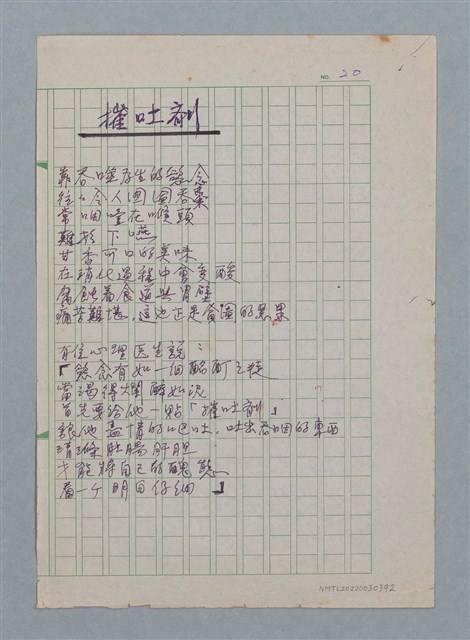 NO. 20
摧吐剤
靠吞噬存生的慾念
往々令人囫圇吞棗
常哽噎在喉頭
難於下嚥
甘香可口的美味
在消化過程中會變酸
腐蝕着食道與胃壁
痛苦難堪，這也正是貪圖的惡果
有位心理医生説：
「慾念有如一個酩酊之徒
當喝得爛醉如泥
首先要給他一點「摧吐剤」
讓他盡情的吐，吐出吞咽的東西
清滌肚腸肝胆
才能將自己的醜態
看一个明白仔細」
NMTL20220030392